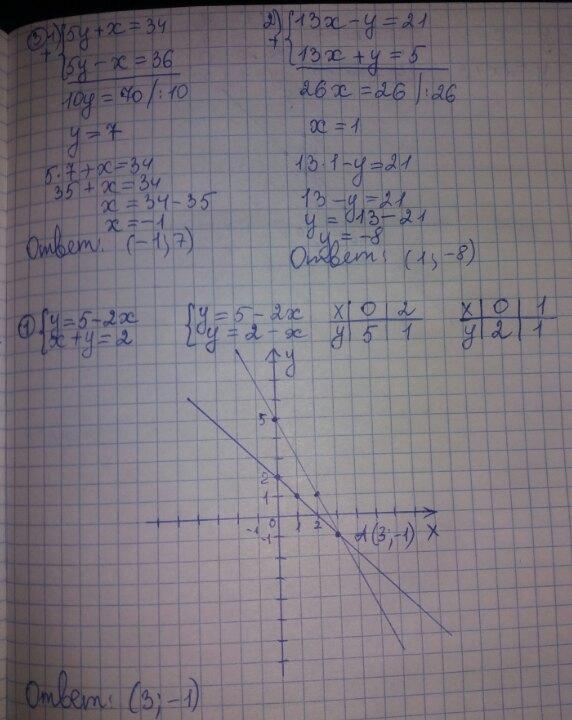 ③ 1) { 5y + x = 34
+ { 5y - x = 36
10y = 70 / : 10
y = 7
5 · 7 + x = 34
35 + x = 34
x = 34 - 35
x = -1
Ответ: (-1; 7)
2) { 13x - y = 21
+ { 13x + y = 5
26x = 26 / : 26
x = 1
13 · 1 - y = 21
13 - y = 21
y = 13 - 21
y = -8
Ответ: (1; -8)
① { y = 5 - 2x
{ x + y = 2
{ y = 5 - 2x
{ y = 2 - x
x | 0 | 2
y | 5 | 1
x | 0 | 1
y | 2 | 1
y
5
2
1
0
-1
-1
1
2
A(3; -1)
x
Ответ: (3; -1)